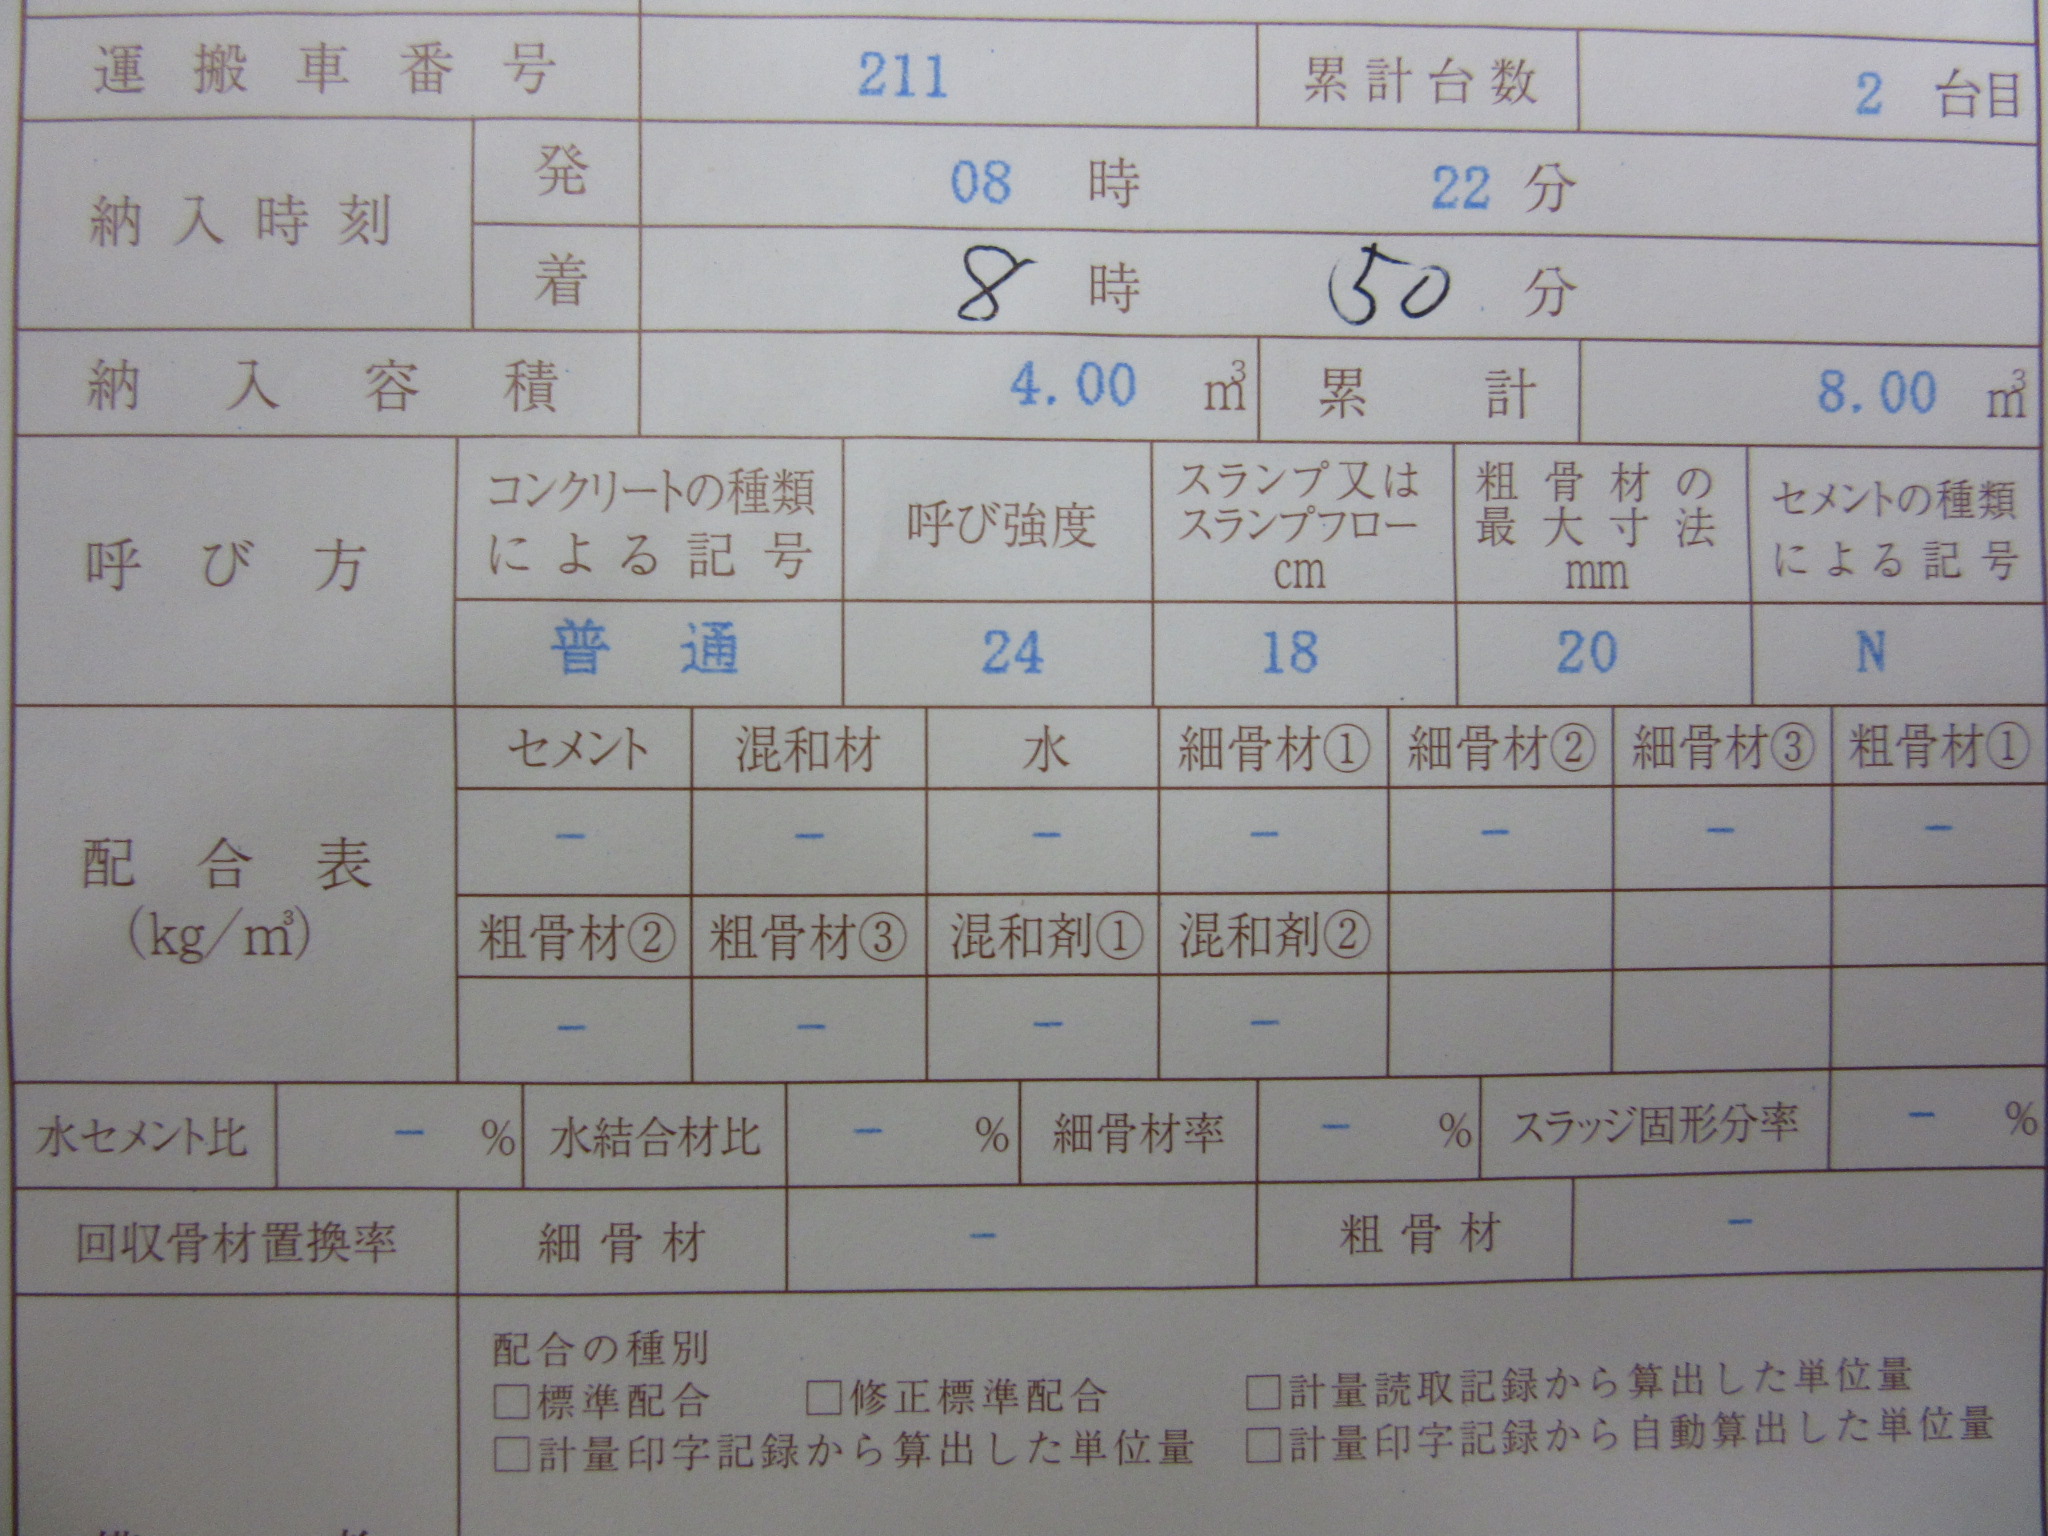 運搬車番号 211 累計台数 2 台目
納入時刻 発 08 時 22 分
着 8 時 50 分
納入容積 4.00 m³ 累計 8.00 m³
呼び方
コンクリートの種類
による記号
呼び強度
スランプ又は
スランプフロー
cm
粗骨材の
最大寸法
mm
セメントの種類
による記号
普通 24 18 20 N
配合表
(kg/m³)
セメント 混和材 水 細骨材① 細骨材② 細骨材③ 粗骨材①
－ － － － － － －
粗骨材② 粗骨材③ 混和剤① 混和剤②
－ － － －
水セメント比 － % 水結合材比 － % 細骨材率 － % スラッジ固形分率 － %
回収骨材置換率 細骨材 － 粗骨材 －
配合の種別
□標準配合 □修正標準配合 □計量読取記録から算出した単位量
□計量印字記録から算出した単位量 □計量印字記録から自動算出した単位量